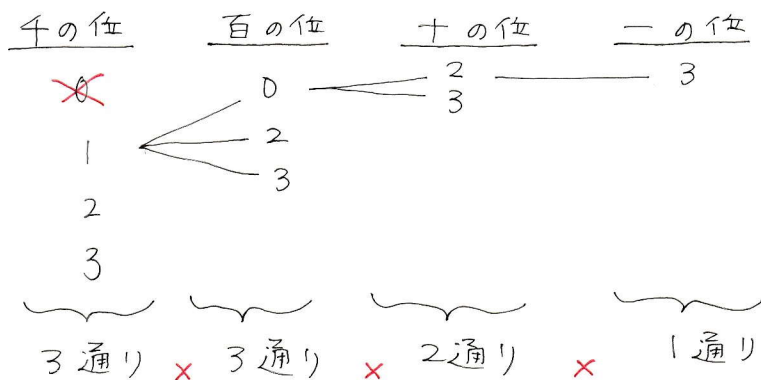 千の位 百の位 十の位 一の位
0 0 2 3
3
1 2
3
2
3
3通り × 3通り × 2通り × 1通り